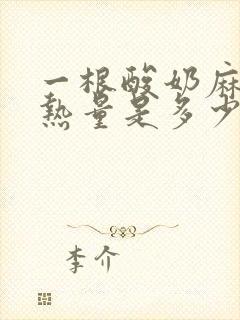 一根酸奶麻
热量是多少
李介